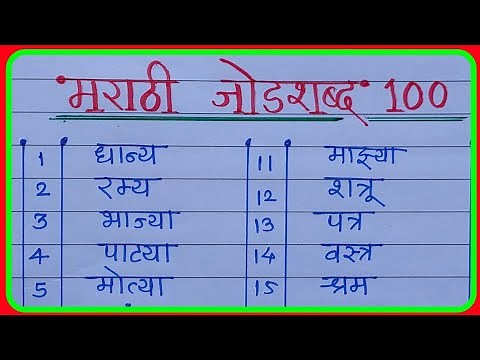 मराठी जोडशब्द 100
1 धान्य
2 रम्य
3 भाज्या
4 पाट्या
5 मोत्या
11 माझ्या
12 शत्रू
13 पत्र
14 वस्त्र
15 श्रम